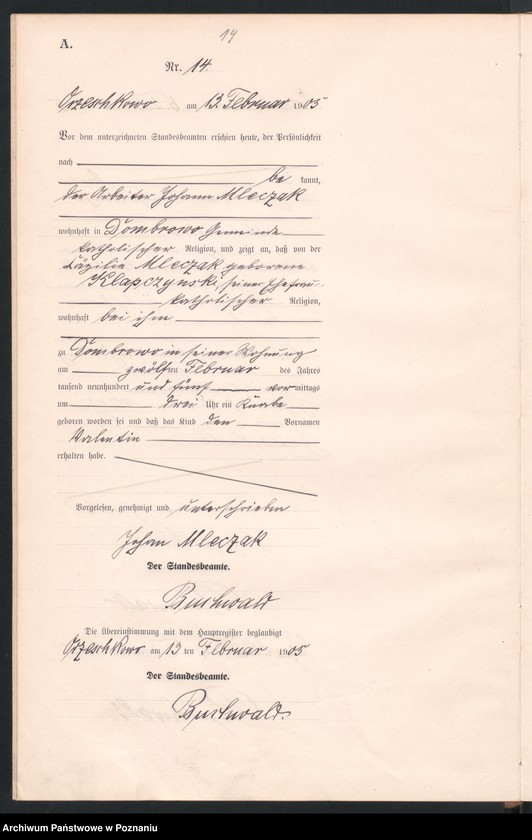 14
A.
Nr. 14.
Orzeschkowo am 13. Februar 1905
Vor dem unterzeichneten Standesbeamten erschien heute, der Persönlichkeit
nach
be kannt,
der Arbeiter Johann Mleczak
wohnhaft in Dombrowo Gemeinde
katholischer Religion, und zeigt an, daß von der
Cäzilie Mleczak geborene
Klapczynski, seiner Ehefrau
katholischer Religion,
wohnhaft bei ihm
zu Dombrowo in seiner Wohnung
am zwölften Februar des Jahres
tausend neunhundert und fünf vormittags
um drei Uhr ein Knabe
geboren worden sei und daß das Kind den Vornamen
Valentin
erhalten habe.
Vorgelesen, genehmigt und unterschrieben
Johan Mleczak
Der Standesbeamte.
Buchwald
Die Übereinstimmung mit dem Hauptregister beglaubigt
Orzeschkowo am 13 ten Februar 1905
Der Standesbeamte.
Buchwald.
Archiwum Państwowe w Poznaniu